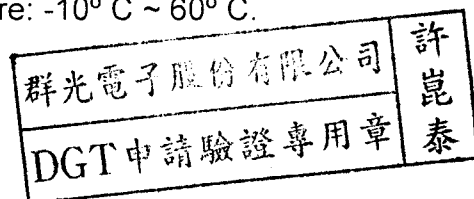 re: -10° C ~ 60° C.
群光電子股份有限公司
DGT申請驗證專用章
許崑泰